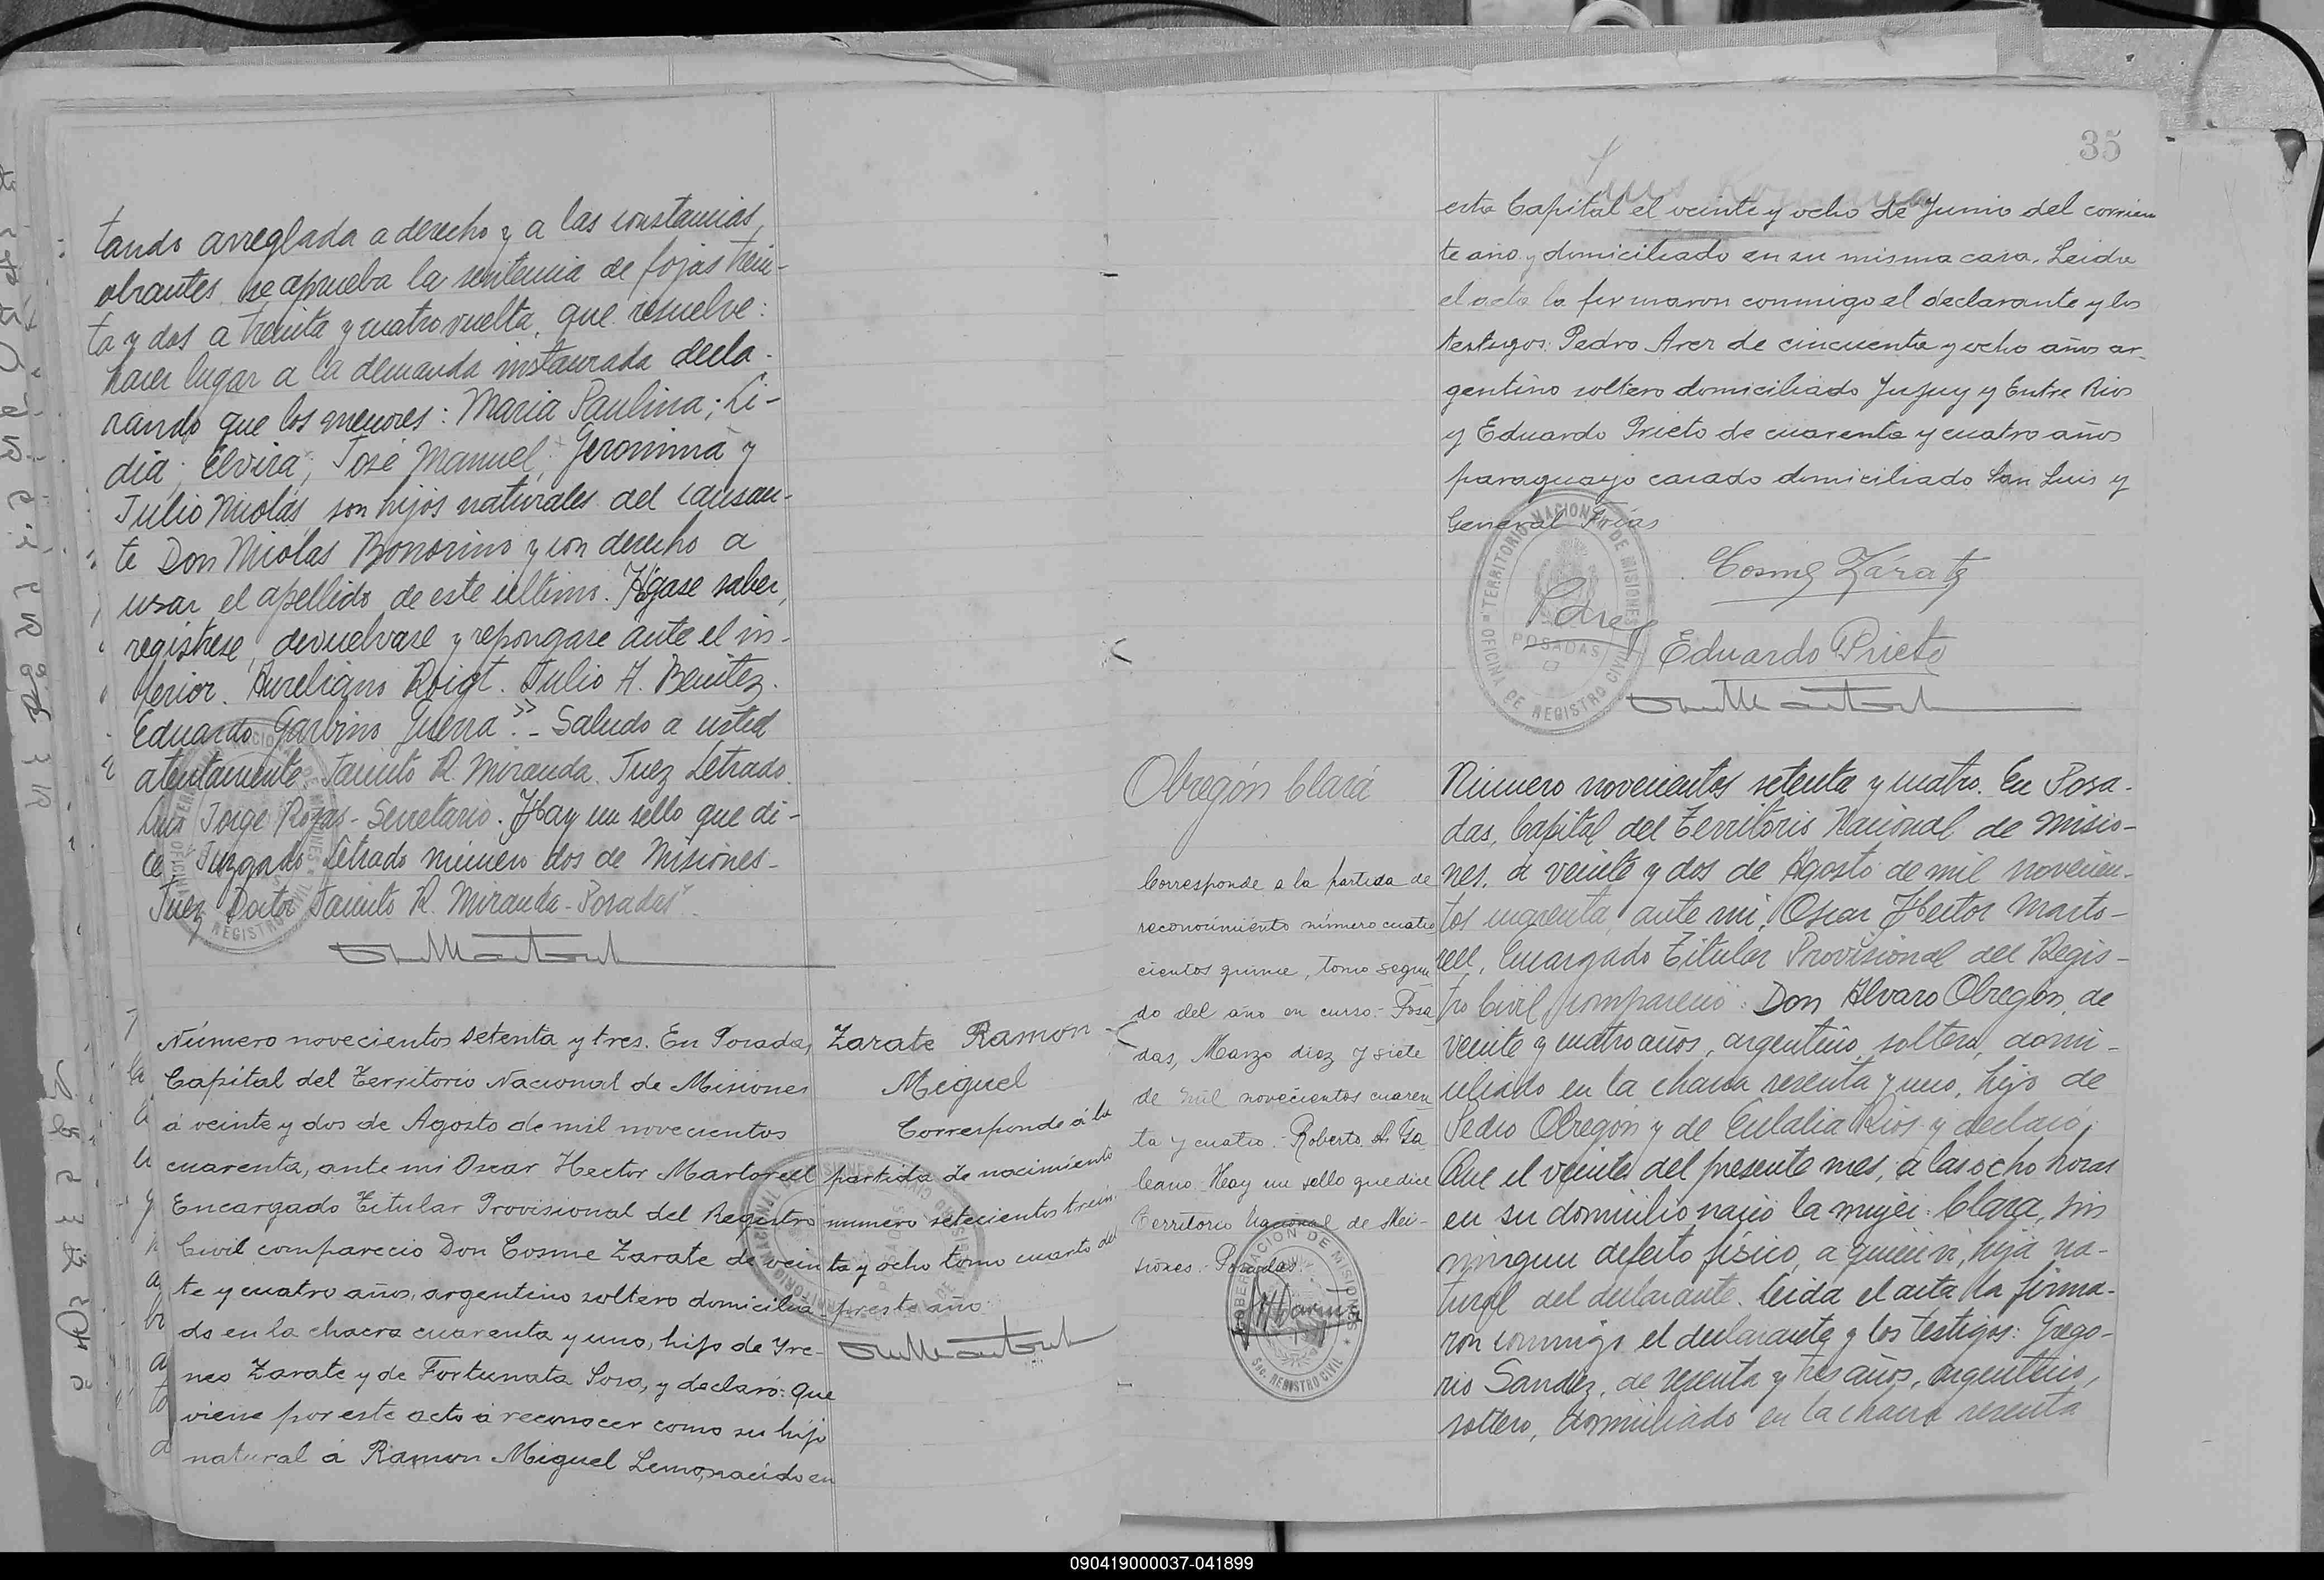 tando arreglada a derecho y a las constancias,
obrantes se aprueba la sentencia de fojas trein-
ta y dos a treinta y cuatro vuelta, que resuelve:
hacer lugar a la demanda instaurada decla-
rando que los menores: Maria Paulina; Li-
dia; Elvira; José Manuel; Geronima y
Julio Nicolás son hijos naturales del causan-
te Don Nicolás Bonorino y con derecho a
usar el apellido de este ultimo. Hágase saber,
registrese, devuelvase y repongase ante el in-
ferior. Aureliano Roigt. Julio A. Benitez.
Eduardo Garbino Guerra". - Saludo a usted
atentamente Jacinto R. Miranda. Juez Letrado.
Jorge Rojas - Secretario. Hay un sello que di-
ce Juzgado Letrado número dos de Misiones -
Juez Doctor Jacinto R. Miranda - Posadas".
Número novecientos setenta y tres. En Posadas,
Capital del Territorio Nacional de Misiones
á veinte y dos de Agosto de mil novecientos
cuarenta, ante mi Oscar Hector Martorell
Encargado Titular Provisional del Registro
Civil compareció Don Cosme Zarate de vein
te y cuatro años, argentino soltero domicilia
do en la chacra cuarenta y uno, hijo de Yre-
neo Zarate y de Fortunata Sosa, y declaró: Que
viene por este acto á reconocer como su hijo
natural á Ramon Miguel Lemo, nacido en
Zarate Ramon
Miguel
Corresponde á la
partida de nacimiento
numero setecientos trein
ta y ocho tomo cuarto del
preste año
35
esta Capital el veinte y ocho de Junio del corrien
te año y domiciliado en su misma casa. Leida
el acta la firmaron conmigo el declarante y los
testigos: Pedro Arer de cincuenta y ocho años ar-
gentino soltero domiciliado Jujuy y Entre Rios
y Eduardo Prieto de cuarenta y cuatro años
paraguayo casado domiciliado San Luis y
General Frias
TERRITORIO NACIONAL DE MISIONES
POSADAS
OFICINA DE REGISTRO CIVIL
Cosme Zárate
Eduardo Prieto
Obregón Clara
Corresponde a la partida de
reconocimiento número cuatro
cientos quince, tomo segun
do del año en curso.- Posa
das, Marzo diez y siete
de mil novecientos cuaren
ta y cuatro.- Roberto A. Ga
leano. Hay un sello que dice
Territorio Nacional de Mi-
siones. Posadas
GOBERNACION DE MISIONES
Sec. REGISTRO CIVIL
Número novecientos setenta y cuatro. En Posa-
das, Capital del Territorio Nacional de Misio-
nes, á veinte y dos de Agosto de mil novecien-
tos cuarenta, ante mi, Oscar Hector Marto-
rell, Encargado Titular Provisional del Regis-
tro Civil, compareció: Don Alvaro Obregón, de
veinte y cuatro años, argentino, soltero, domi-
ciliado en la chacra sesenta y uno, hijo de
Pedro Obregón y de Eulalia Rios y declaró,
Que el veinte del presente mes, a las ocho horas
en su domicilio nació la mujer: Clara, sin
ningun defecto fisico, a quien vi, hija na-
tural del declarante. Leida el acta la firma-
ron conmigo el declarante y los testigos: Grego-
rio Sandez, de sesenta y tres años, argentino,
soltero, domiciliado en la chacra sesenta
090419000037-041899